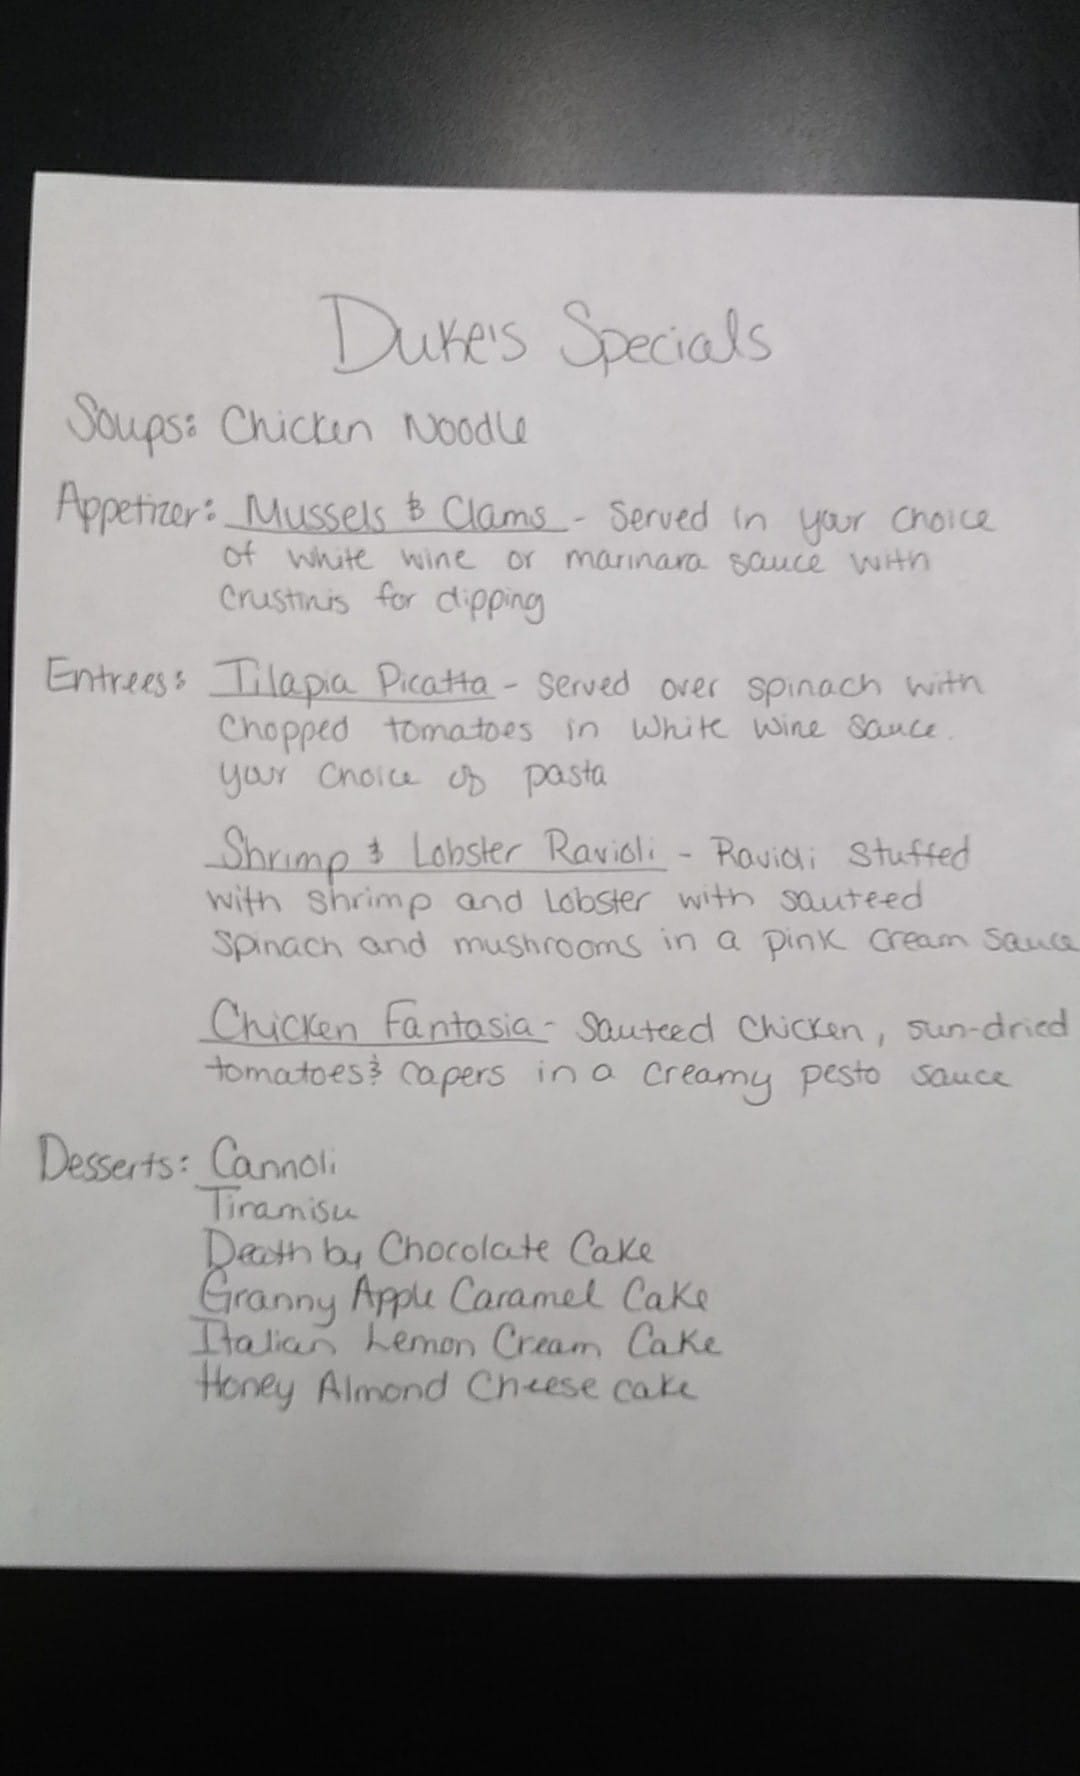 Duke's Specials
Soups: Chicken Noodle
Appetizer: Mussels & Clams - Served in your choice
of white wine or marinara sauce with
Crustinis for dipping
Entrees: Tilapia Picatta - served over spinach with
Chopped tomatoes in white wine sauce.
your choice of pasta
Shrimp & Lobster Ravioli - Ravioli Stuffed
with shrimp and Lobster with sauteed
Spinach and mushrooms in a pink cream sauce
Chicken Fantasia - Sauteed Chicken, sun-dried
tomatoes & capers in a creamy pesto sauce
Desserts: Cannoli
Tiramisu
Death by Chocolate Cake
Granny Apple Caramel Cake
Italian Lemon Cream Cake
Honey Almond Cheese cake